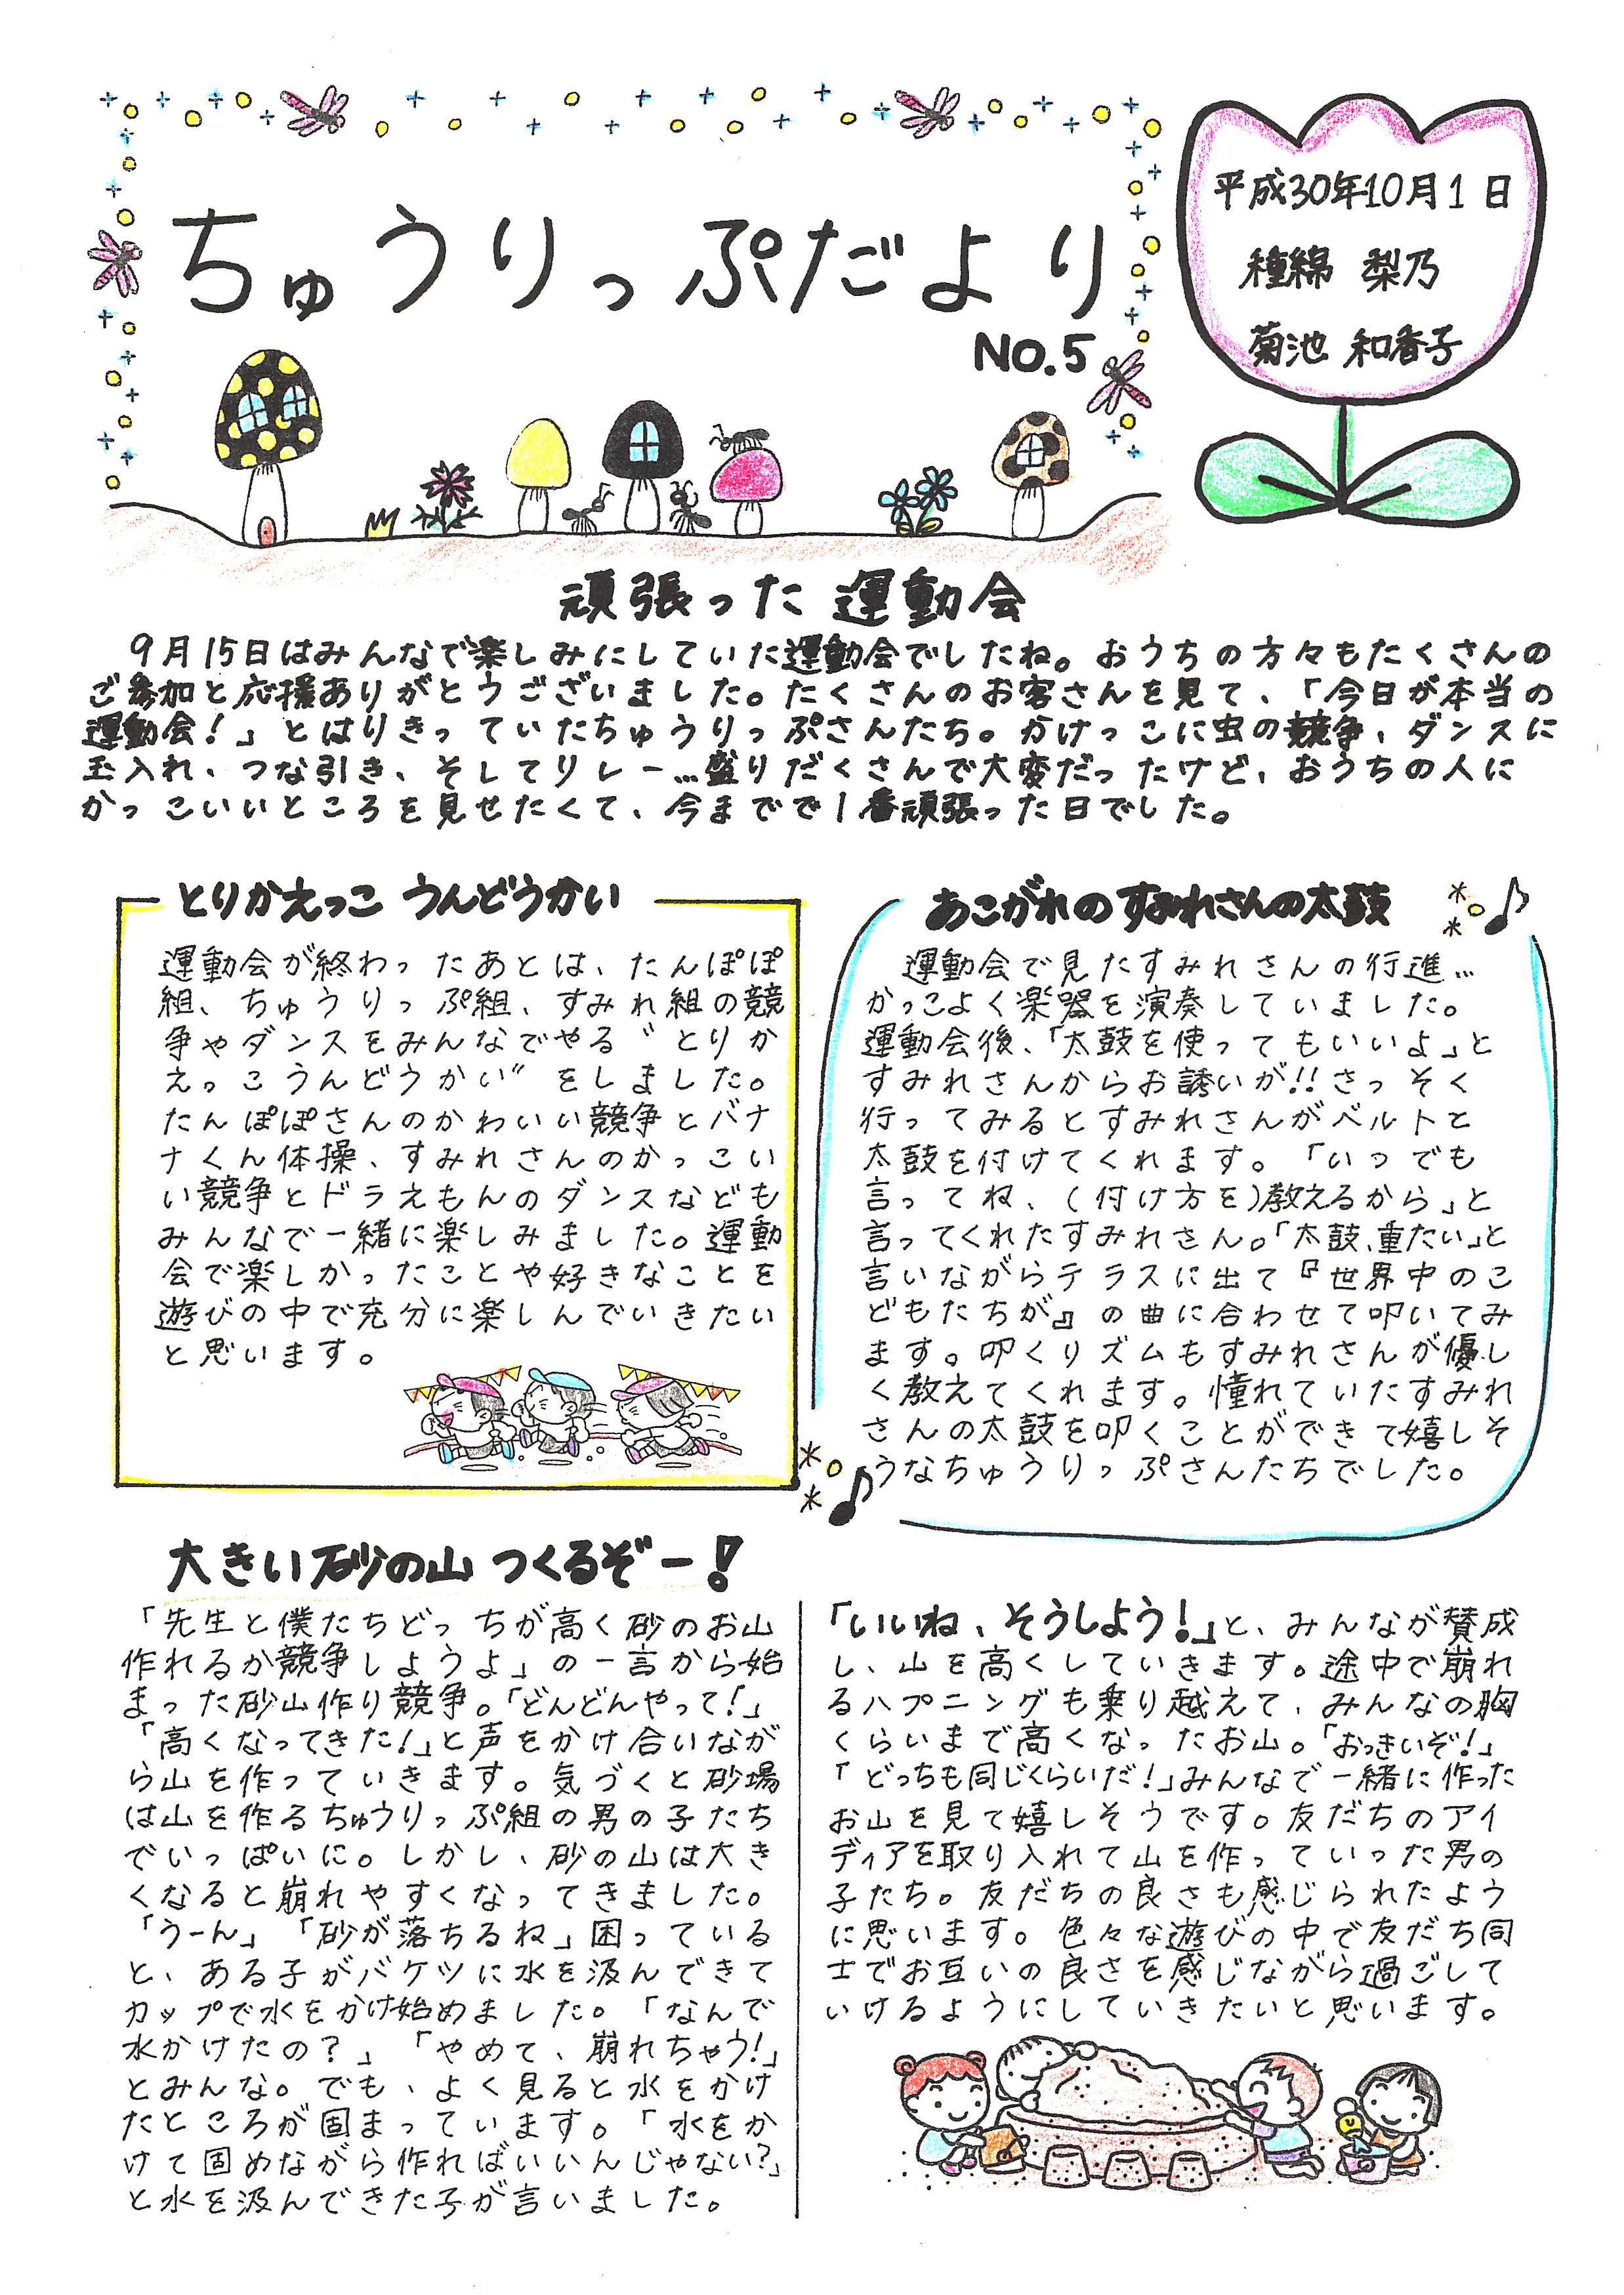 ちゅうりっぷだより
NO.5
平成30年10月1日
種綿 梨乃
菊池 和香子
頑張った 運動会
9月15日はみんなで楽しみにしていた運動会でしたね。おうちの方々もたくさんの
ご参加と応援ありがとうございました。たくさんのお客さんを見て、「今日が本当の
運動会!」とはりきっていたちゅうりっぷさんたち。かけっこに虫の競争、ダンスに
玉入れ、つな引き、そしてリレー…盛りだくさんで大変だったけど、おうちの人に
かっこいいところを見せたくて、今までで1番頑張った日でした。
とりかえっこ うんどうかい
運動会が終わったあとは、たんぽぽ
組、ちゅうりっぷ組、すみれ組の競
争やダンスをみんなでやる〝とりか
えっこうんどうかい〟をしました。
たんぽぽさんのかわいい競争とバナ
ナくん体操、すみれさんのかっこい
い競争とドラえもんのダンスなども
みんなで一緒に楽しみました。運動
会で楽しかったことや好きなことを
遊びの中で充分に楽しんでいきたい
と思います。
あこがれのすみれさんの太鼓
運動会で見たすみれさんの行進…
かっこよく楽器を演奏していました。
運動会後、「太鼓を使ってもいいよ」と
すみれさんからお誘いが!!さっそく
行ってみるとすみれさんがベルトと
太鼓を付けてくれます。「いつでも
言ってね、(付け方を)教えるから」と
言ってくれたすみれさん。「太鼓、重たい」と
言いながらテラスに出て『世界中のこ
どもたちが』の曲に合わせて叩いてみ
ます。叩くリズムもすみれさんが優し
く教えてくれます。憧れていたすみれ
さんの太鼓を叩くことができて嬉しそ
うなちゅうりっぷさんたちでした。
大きい砂の山 つくるぞー!
「先生と僕たちどっちが高く砂のお山
作れるか競争しようよ」の一言から始
まった砂山作り競争。「どんどんやって!」
「高くなってきた!」と声をかけ合いなが
ら山を作っていきます。気づくと砂場
は山を作るちゅうりっぷ組の男の子たち
でいっぱいに。しかし、砂の山は大き
くなると崩れやすくなってきました。
「うーん」「砂が落ちるね」困っている
と、ある子がバケツに水を汲んできて
カップで水をかけ始めました。「なんで
水かけたの?」「やめて、崩れちゃう!」
とみんな。でも、よく見ると水をかけ
たところが固まっています。「水をか
けて固めながら作ればいいんじゃない?」
と水を汲んできた子が言いました。
「いいね、そうしよう!」と、みんなが賛成
し、山を高くしていきます。途中で崩れ
るハプニングも乗り越えて、みんなの胸
くらいまで高くなったお山。「おっきいぞ!」
「どっちも同じくらいだ!」みんなで一緒に作った
お山を見て嬉しそうです。友だちのアイ
ディアを取り入れて山を作っていった男の
子たち。友だちの良さも感じられたよう
に思います。色々な遊びの中で友だち同
士でお互いの良さを感じながら過ごして
いけるようにしていきたいと思います。